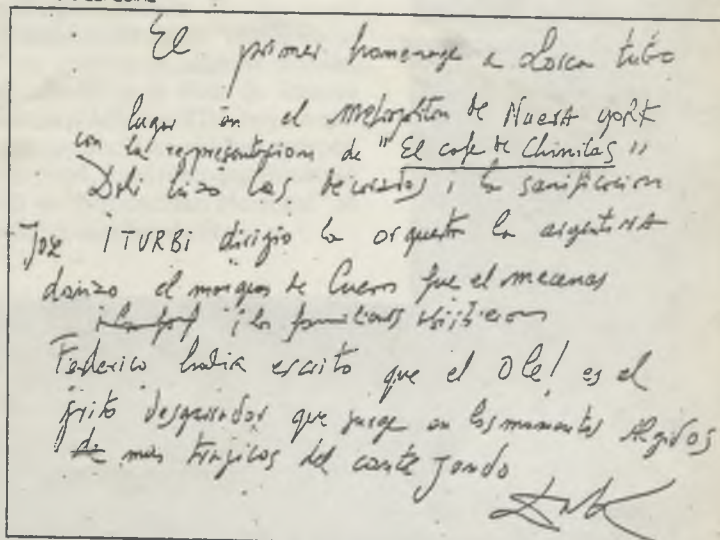 El primer homenage a Lorca tubo
lugar en el metropoliton de Nueva york
con la representacion de "El cafe de Chinitas"
Dali hizo las decorados, la sanificacion
Joze ITURBi dirigio la orquesta la argentina
danzo el marques de Cuevas fue el mecenas
i los familiares
Federico habia escrito que el Ole! es el
grito desgarrador que surge en los momentos Algidos
de mas trajicos del cante jondo